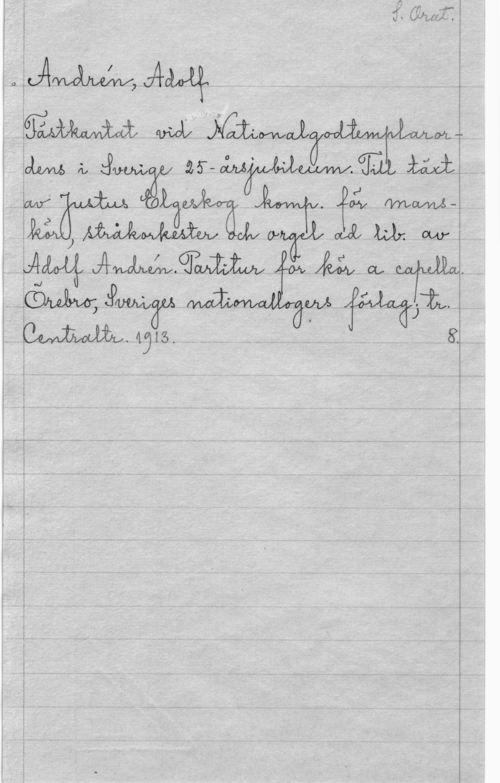 S. Orat.
Andrén, Adolf
Fästkantat vid Nationalgodtemplaror-
dens i Sverige 25-årsjubileum. Till täxt
av Justus Elgeskog komp. för mans-
kör, stråkorkester och orgel ad lib. av
Adolf Andrén. Partitur för kör a capella.
Örebro, Sveriges nationallogers förlag; tr.
Centraltr. 1913. 8.